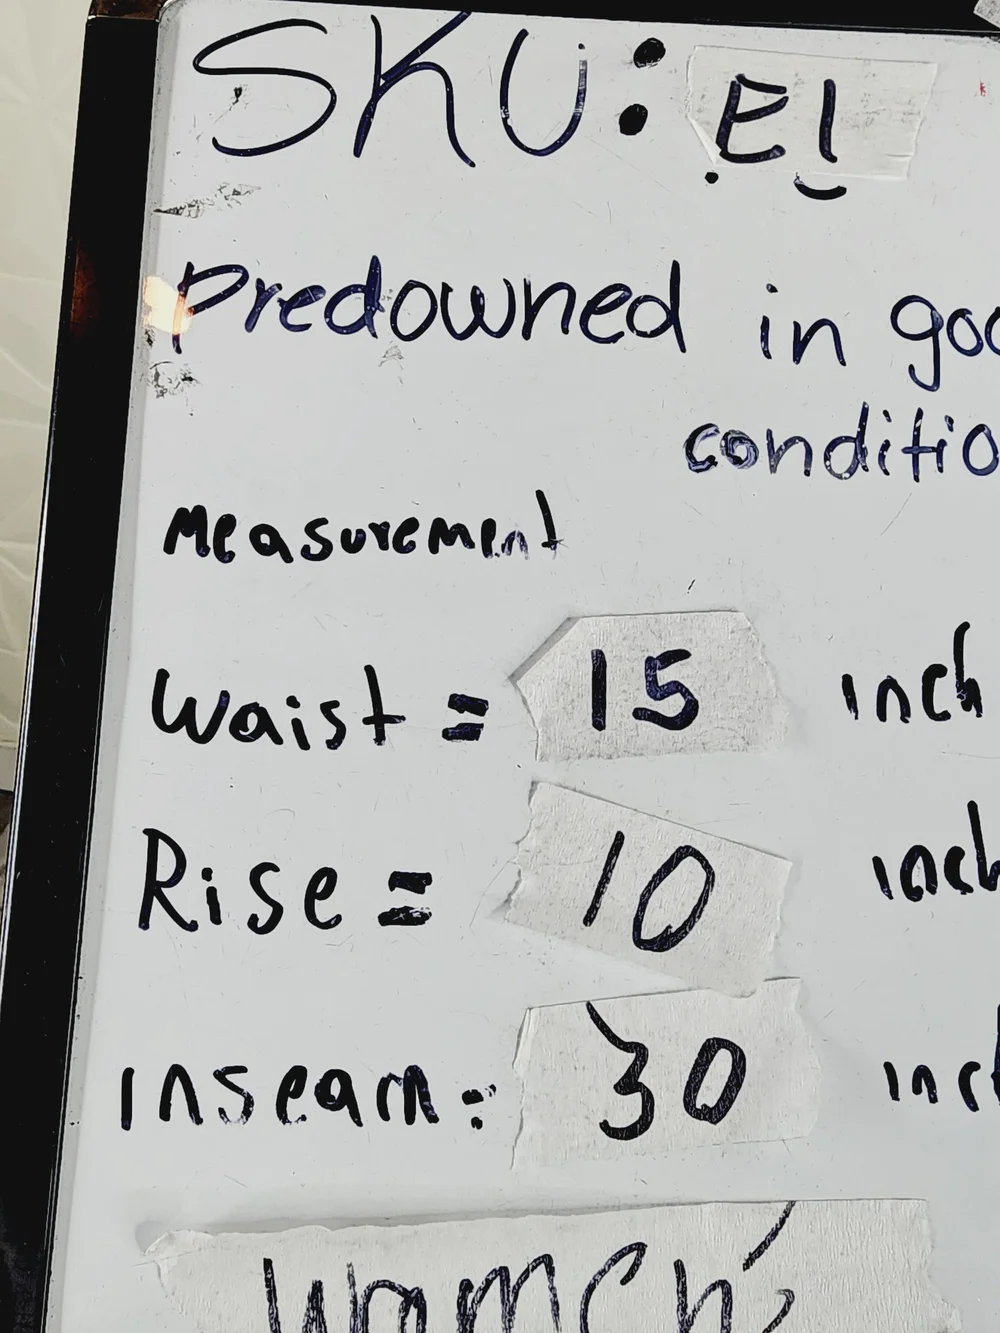 SKU: E1
Predowned in goo
conditio
Measurement
Waist = 15 inch
Rise = 10 inch
Inseam: 30 inch
women's